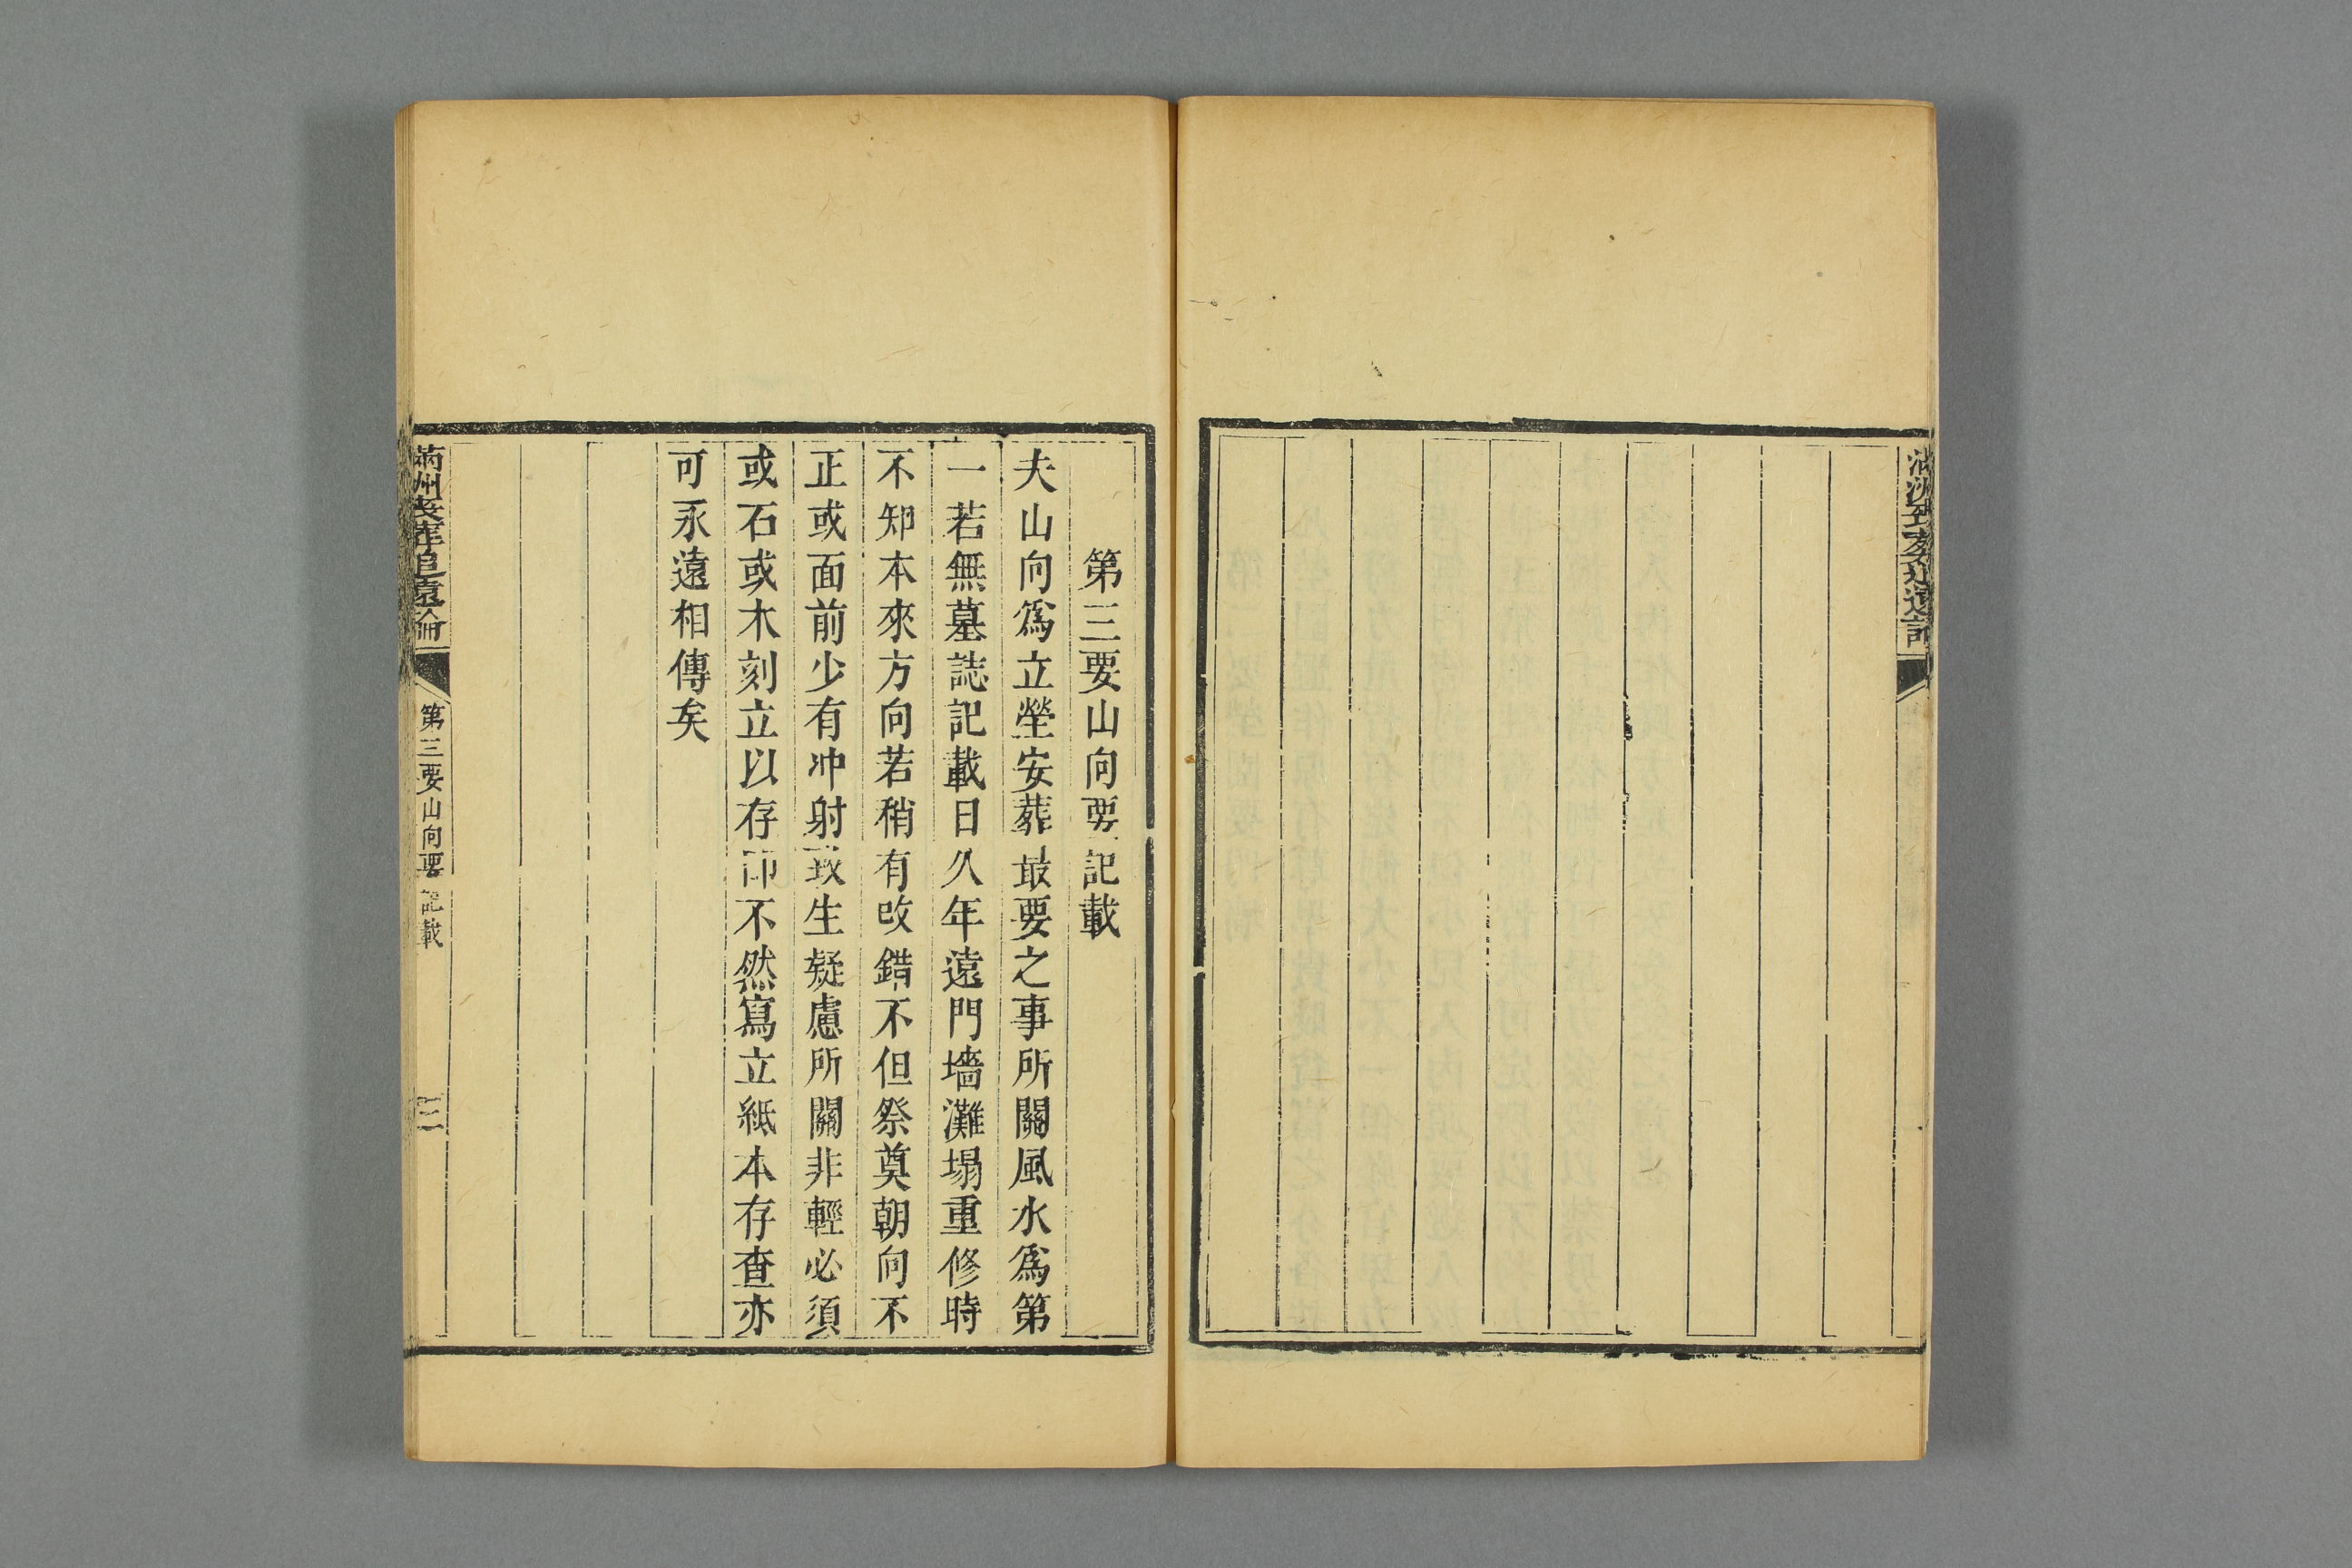 第三要山向要記載
夫山向爲立塋安葬最要之事所關風水爲第
一若無墓誌記載日久年遠門墻灘塌重修時
不知本來方向若稍有改錯不但祭奠朝向不
正或面前少有冲射致生疑慮所關非輕必須
或石或木刻立以存印不然寫立紙本存查亦
可永遠相傳矣
第三要山向要記載
三